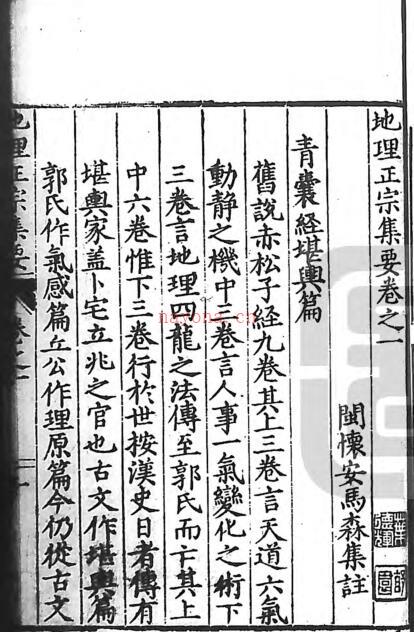 地理正宗集要卷之一
閩懷安馬森集註
青囊經堪輿篇
舊說赤松子經九卷其上三卷言天道六氣
動靜之機中三卷言人事一氣變化之術下
三卷言地理四龍之法傳至郭氏而亡其上
中六卷惟下三卷行於世按漢史日者傳有
堪輿家盖卜宅立兆之官也古文作堪輿篇
郭氏作氣感篇丘公作理原篇今仍從古文
地理正宗集要
卷之一
nayona.cn